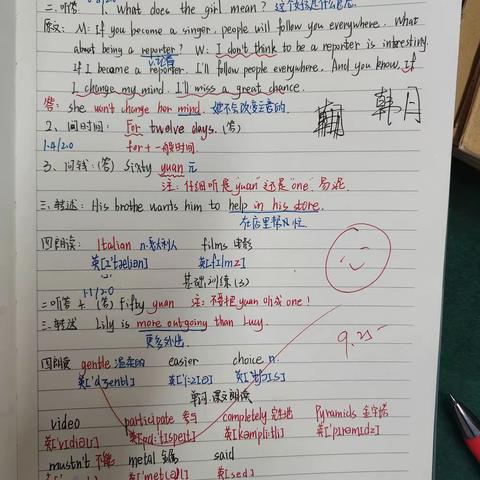 二.听答 1. What does the girl mean? 这个女孩是什么意思
原文: M: If you become a singer, people will follow you everywhere. What
about being a reporter? W: I don't think to be a reporter is interesting.
n.记者
If I became a reporter. I'll follow people everywhere. And you know, if
I change my mind. I'll miss a great chance.
答: she won't change her mind. 她不会改变主意的 韩月
2、问时间: For twelve days. (答)
1.4/2.0 for + 一般时间.
3、问钱: (答) Sixty yuan 元
注: 仔细听是"yuan"还是"one"易混
三、转述: His brothe wants him to help in his store.
在店里帮忙
四.朗读: Italian n.意大利人 films 电影
英[ɪ'tæliən] 英[fɪlmz]
基础训练(3)
1.1/2.0
二.听答 (答) Fifty yuan 注: 不要把yuan听成one!
三、转述 Lily is more outgoing than Lucy.
更外出 9.25
四.朗读 gentle 温柔的 easier choice n.
英['dʒentl] 英['i:zɪə] 英[tʃɔɪs]
单词.课文朗读
video participate 参与 completely 完全地 Pyramids 金字塔
英['vɪdiəʊ] 英[pɑ:'tɪsɪpeɪt] 英[kəmpli:tli] 英['pɪrəmɪdz]
mustn't 不能 metal 金属 said
英['met(ə)l] 英[sed]